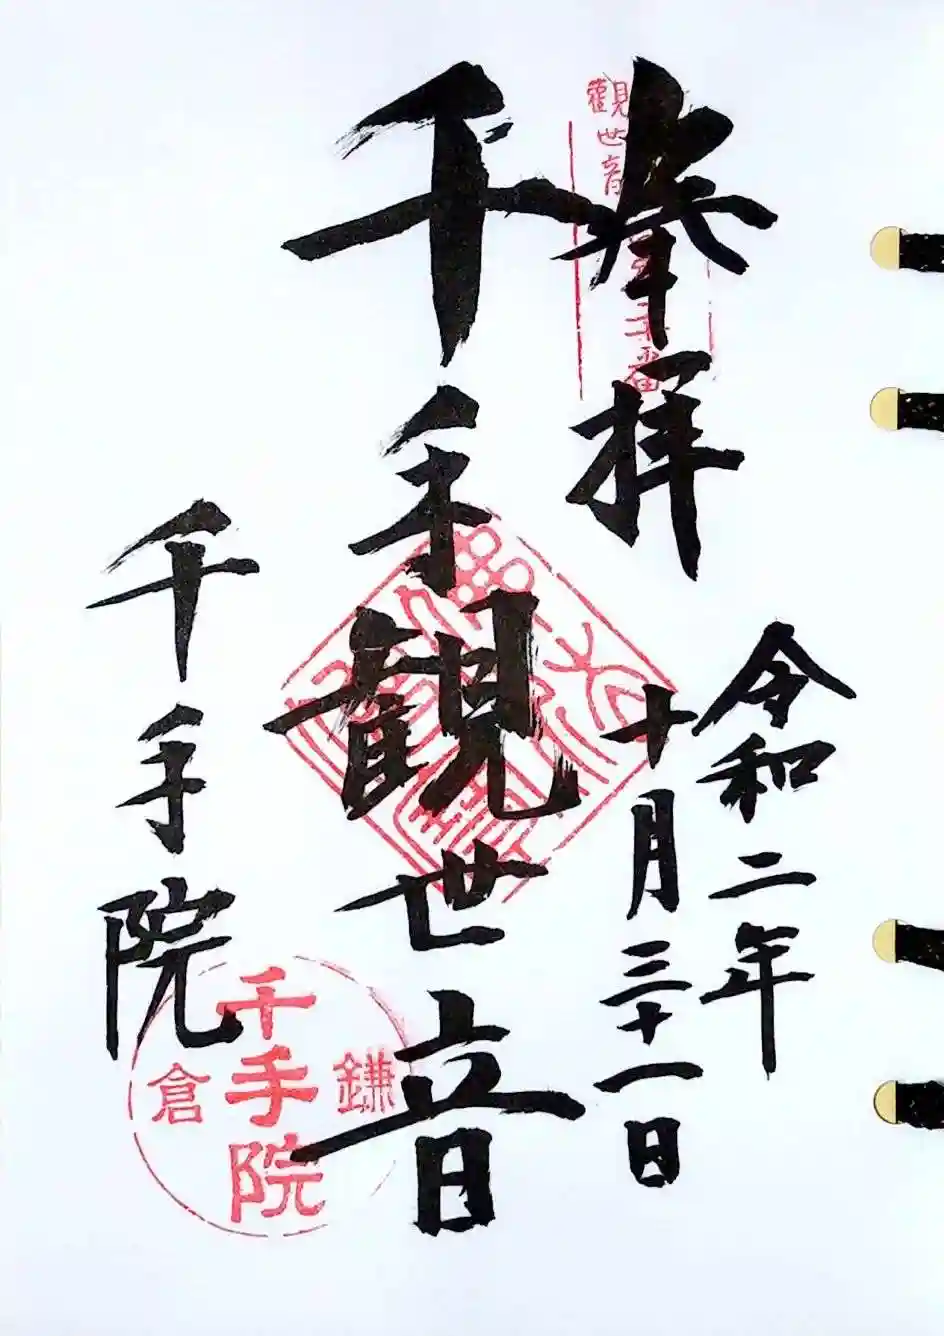 奉拝
令和二年
十月三十一日
千手観世音
千手院
觀世音
番
鎌
倉
千手院